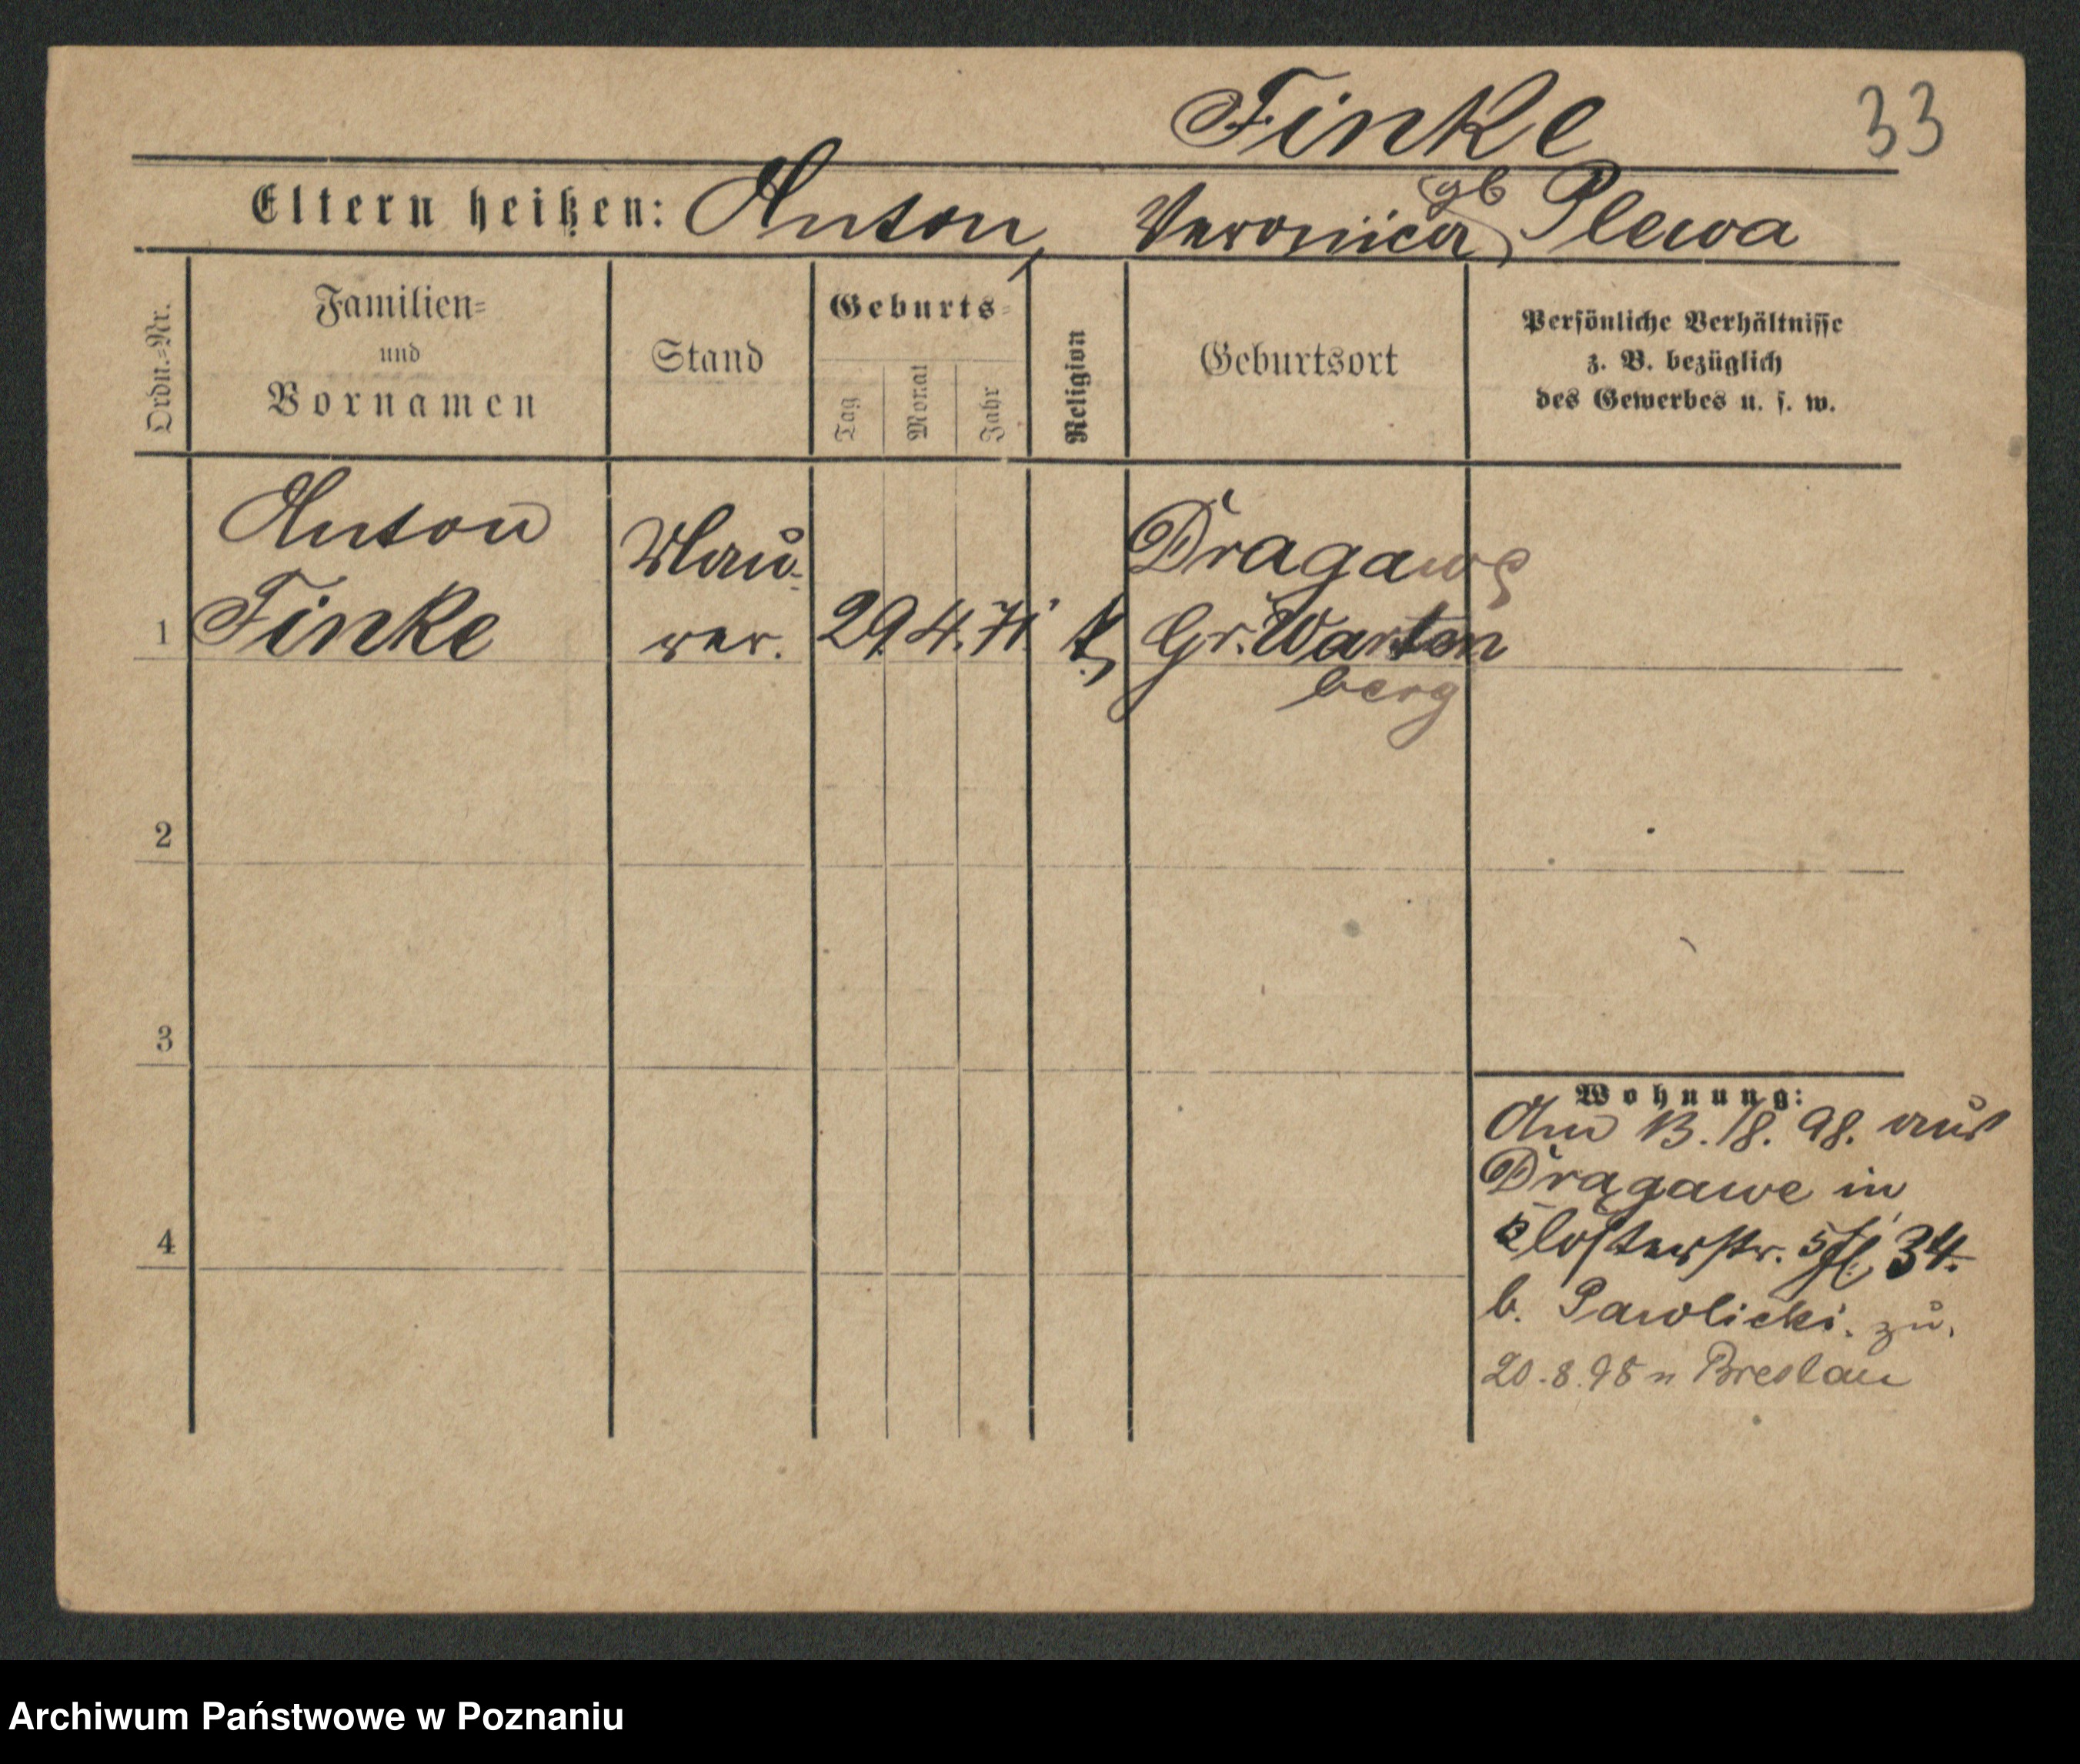 Finke 33
Eltern heißen: Anton, Veronica gb Plewa
Ordn.-Nr.
Familien-
und
Vornamen
Stand
Geburts-
Tag
Monat
Jahr
Religion
Geburtsort
Persönliche Verhältnisse
z. B. bezüglich
des Gewerbes u. s. w.
Anton Mau- Dragawe
1 Finke rer. 29. 4. 71. k. Gr. Warten
berg
2
3
4
Wohnung:
Am 13./8. 98. aus
Dragawe in
Klosterstr. 34.
b. Pawlicki. zu.
20.8.98 n Breslau
Archiwum Państwowe w Poznaniu